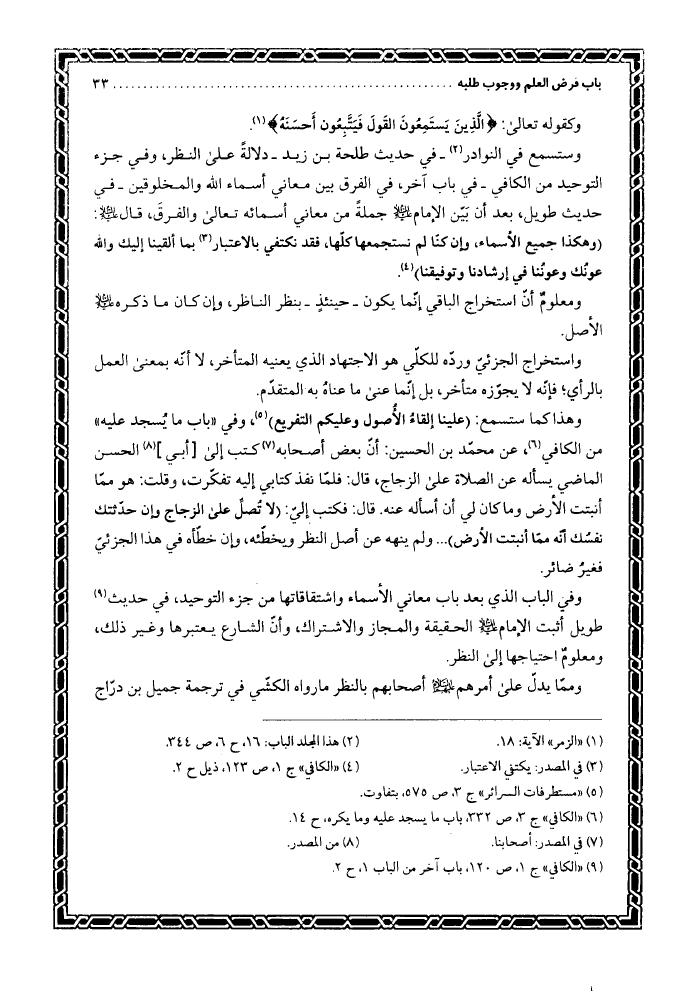 باب فرض العلم ووجوب طلبه ........................................................ ٣٣
وكقوله تعالىٰ: ﴿الَّذِينَ يَستَمِعُونَ القَولَ فَيَتَّبِعُون أَحسَنَهُ﴾(١).
وستسمع في النوادر(٢) ـ في حديث طلحة بـن زيـد ـ دلالةً عـلىٰ النـظر، وفـي جـزء
التوحيد من الكافي ـ في باب آخر، في الفرق بين معاني أسـماء الله والمـخلوقين ـ فـي
حديث طويل، بعد أن بيّن الإمام ﷷ جملةً من معاني أسمائه تـعالىٰ والفـرقَ، قـال ﷷ:
(وهكذا جميع الأسماء، وإن كنّا لم نستجمعها كلّها، فقد نكتفي بالاعتبار(٣) بما ألقينا إليك والله
عونُك وعونُنا في إرشادنا وتوفيقنا)(٤).
ومعلومٌ أنّ استخراج الباقي إنّما يكون ـ حينئذٍ ـ بنظر الناظر، وإن كـان مـا ذكـره ﷷ
الأصل.
واستخراج الجزئيّ وردّه للكلّي هو الاجتهاد الذي يعنيه المتأخر، لا أنّه بمعنىٰ العمل
بالرأي؛ فإنّه لا يجوّزه متأخر، بل إنّما عنىٰ ما عناهُ به المتقدّم.
وهذا كما ستسمع: (علينا إلقاءُ الأُصول وعليكم التفريع)(٥)، وفي «باب ما يُسجد عليه»
من الكافي(٦)، عن محمّد بن الحسين: أنّ بعض أصحابه(٧) كـتب إلىٰ [أبـي](٨) الحسـن
الماضي يسأله عن الصلاة علىٰ الزجاج، قال: فلمّا نفذ كتابي إليه تفكّرت، وقلت: هو ممّا
أنبتت الأرض وما كان لي أن أسأله عنه. قال: فكتب إليّ: (لا تُصلّ علىٰ الزجاج وإن حدّثتك
نفسُك أنّه ممّا أنبتت الأرض)... ولم ينهه عن أصل النظر ويخطّئه، وإن خطّأه في هذا الجزئيّ
فغيرُ ضائر.
وفي الباب الذي بعد باب معاني الأسماء واشتقاقاتها من جزء التوحيد، في حديث(٩)
طويل أثبت الإمام ﷷ الحـقيقة والمـجاز والاشـتراك، وأنّ الشـارع يـعتبرها وغـير ذلك،
ومعلومٌ احتياجها إلىٰ النظر.
وممّا يدلّ علىٰ أمرهم ﷷ أصحابهم بالنظر مارواه الكشّي في ترجمة جميل بن درّاج
(١) «الزمر» الآية: ١٨. (٢) هذا المجلد الباب: ١٦، ح ٦، ص ٣٤٤.
(٣) في المصدر: يكتفي الاعتبار. (٤) «الكافي» ج ١، ص ١٢٣، ذيل ح ٢.
(٥) «مستطرفات السرائر» ج ٣، ص ٥٧٥، بتفاوت.
(٦) «الكافي» ج ٣، ص ٣٣٢، باب ما يسجد عليه وما يكره، ح ١٤.
(٧) في المصدر: أصحابنا. (٨) من المصدر.
(٩) «الكافي» ج ١، ص ١٢٠، باب آخر من الباب ١، ح ٢.